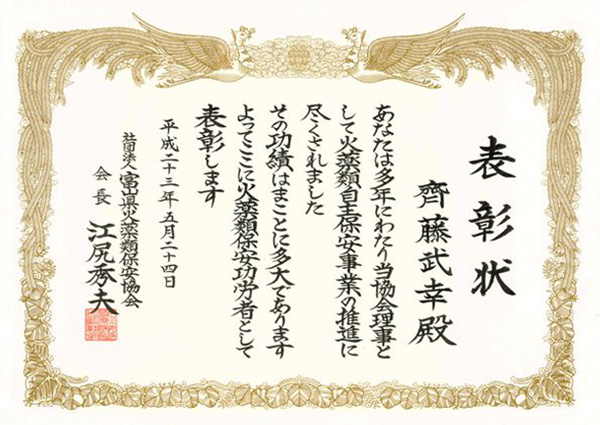 表彰状
齊藤武幸殿
あなたは多年にわたり当協会理事と
して火薬類自主保安事業の推進に
尽くされました
その功績はまことに多大であります
よってここに火薬類保安功労者として
表彰します
平成二十三年五月二十四日
社団法人富山県火薬類保安協会
会長 江尻秀夫